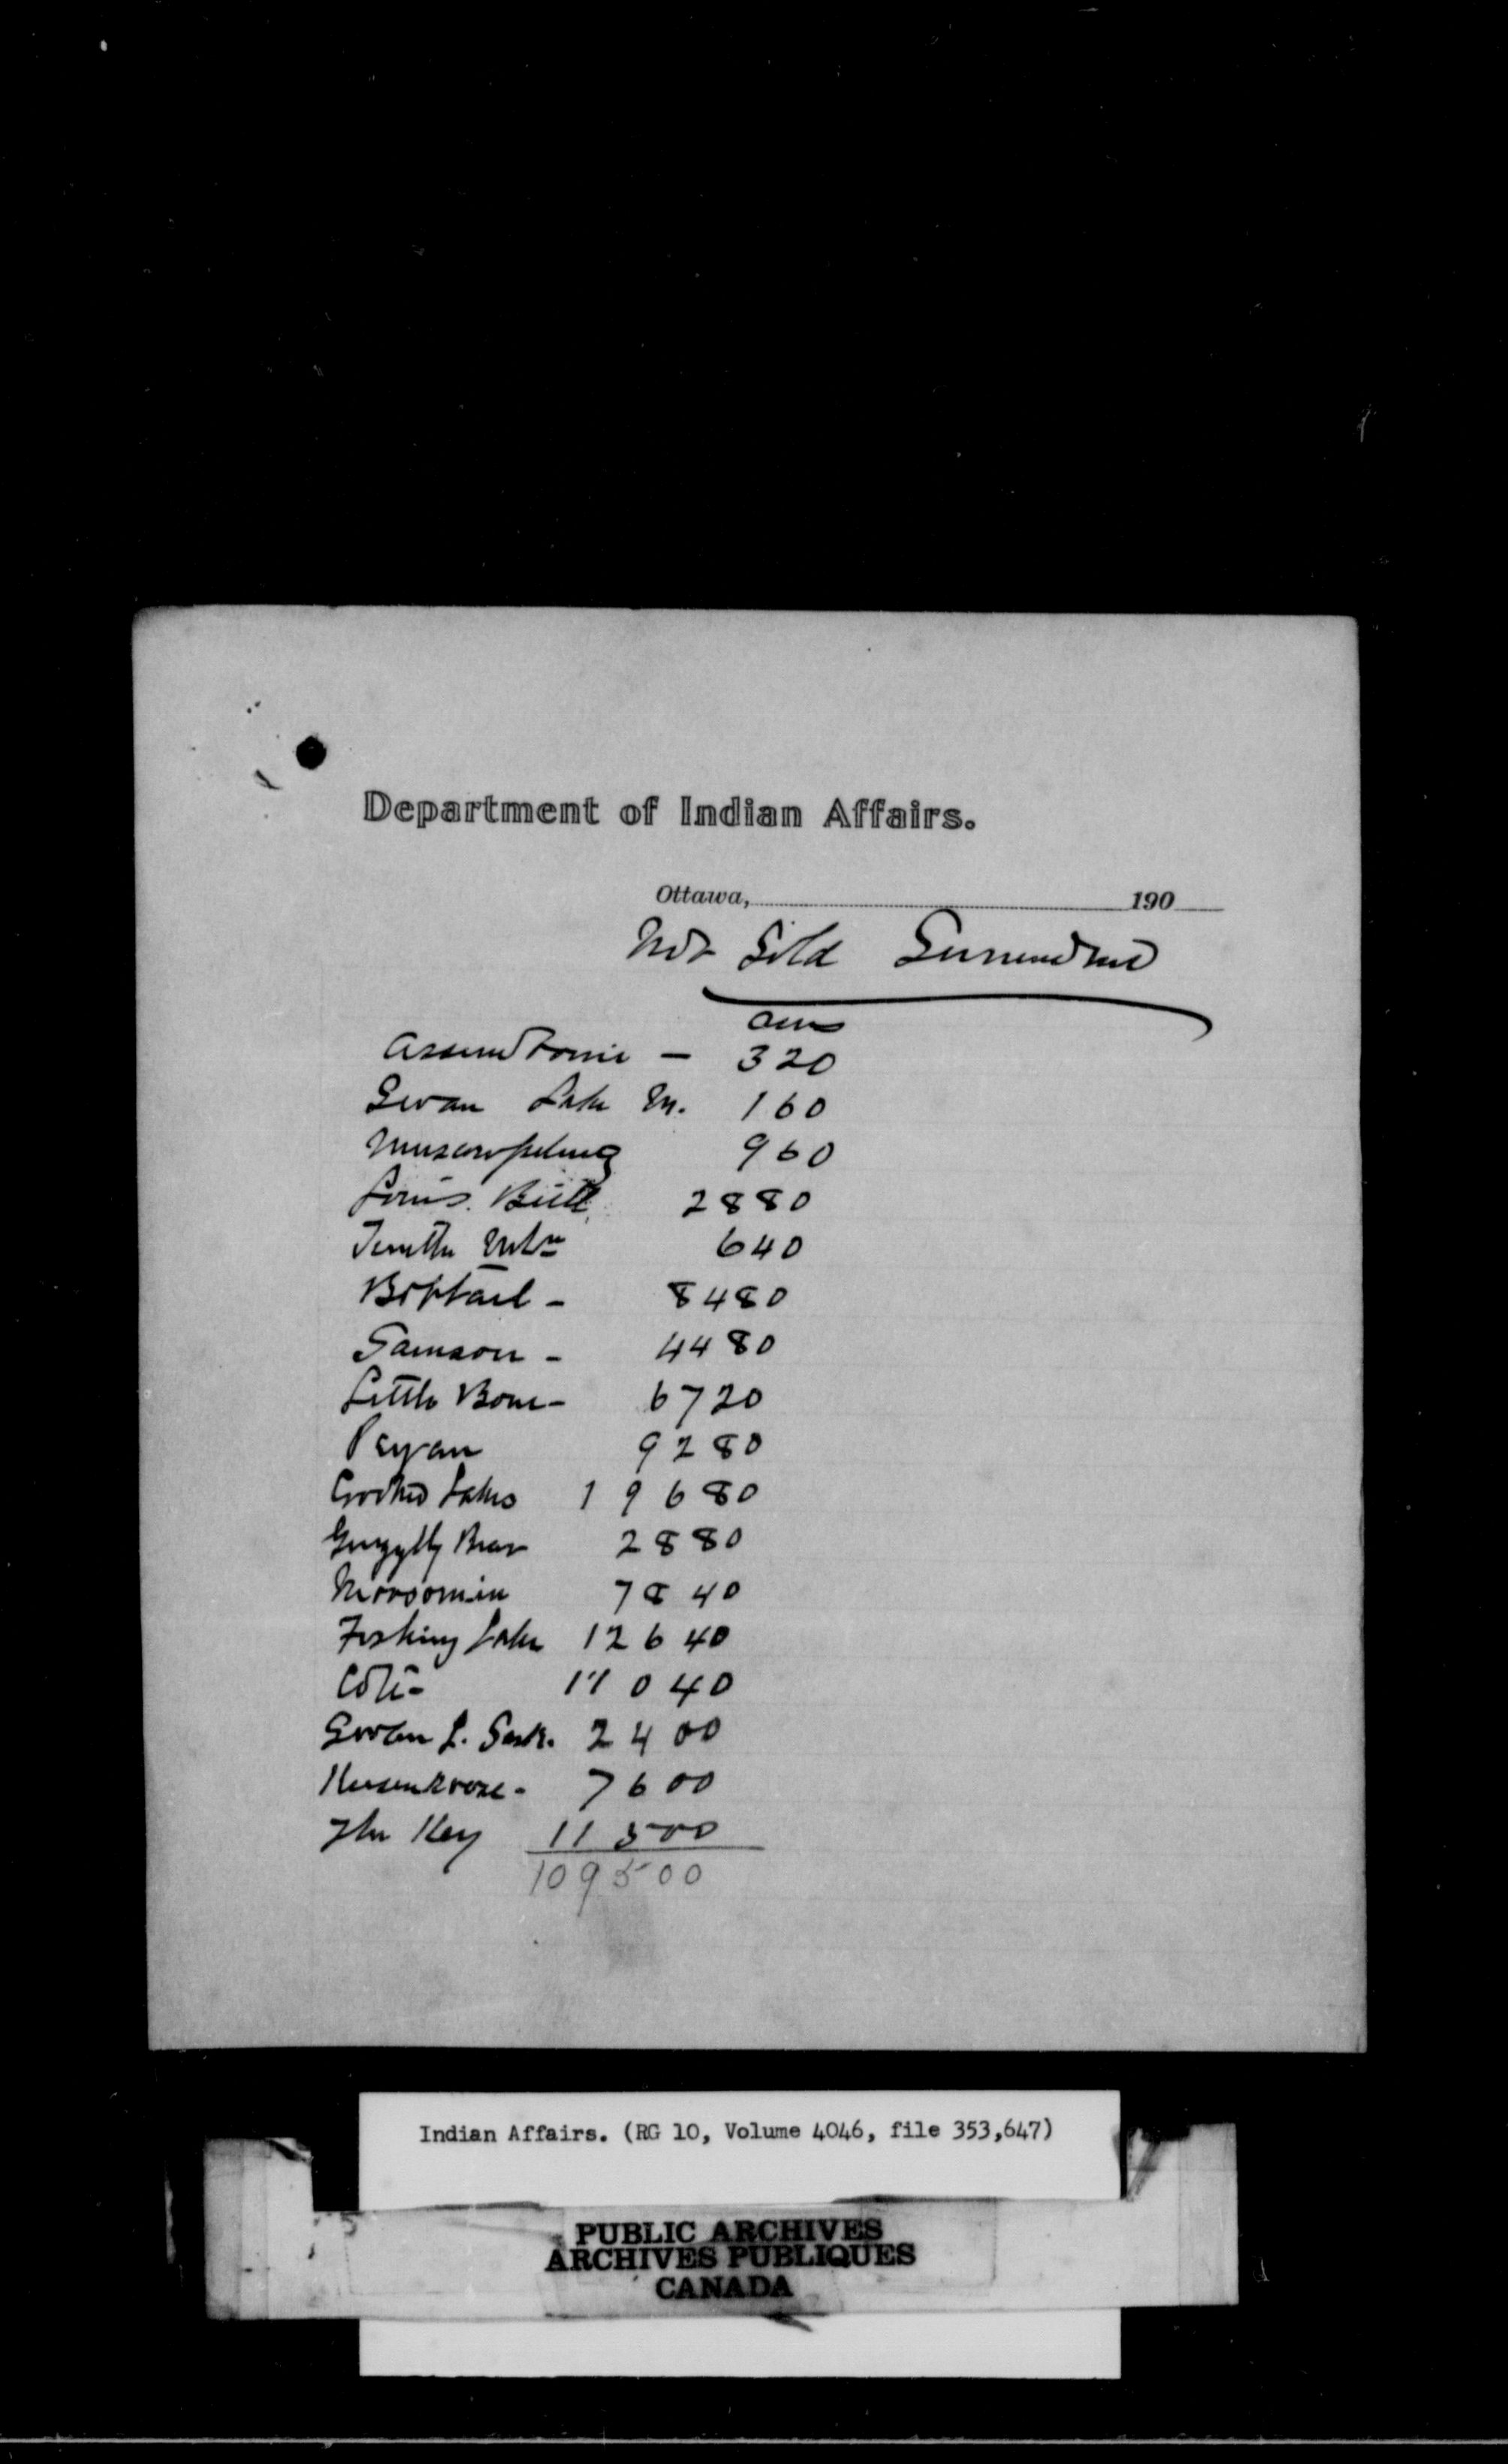 Department of Indian Affairs.
Ottawa, 190
Not Sold Surrendered
acres
Assiniboine - 320
Swan Lake M. 160
Muscowpetung 960
Louis Bull 2880
640
Bobtail - 8480
Samson - 4480
Little Bone - 6720
Pasqua 9280
Crooked Lakes 19680
Grizzly Bear 2880
Moosomin 7840
Fishing Lake 12640
Coté - 11040
Swan L. Sask. 2400
Keeseekoose - 7600
The Key 11500
109500
Indian Affairs. (RG 10, Volume 4046, file 353,647)
PUBLIC ARCHIVES
ARCHIVES PUBLIQUES
CANADA